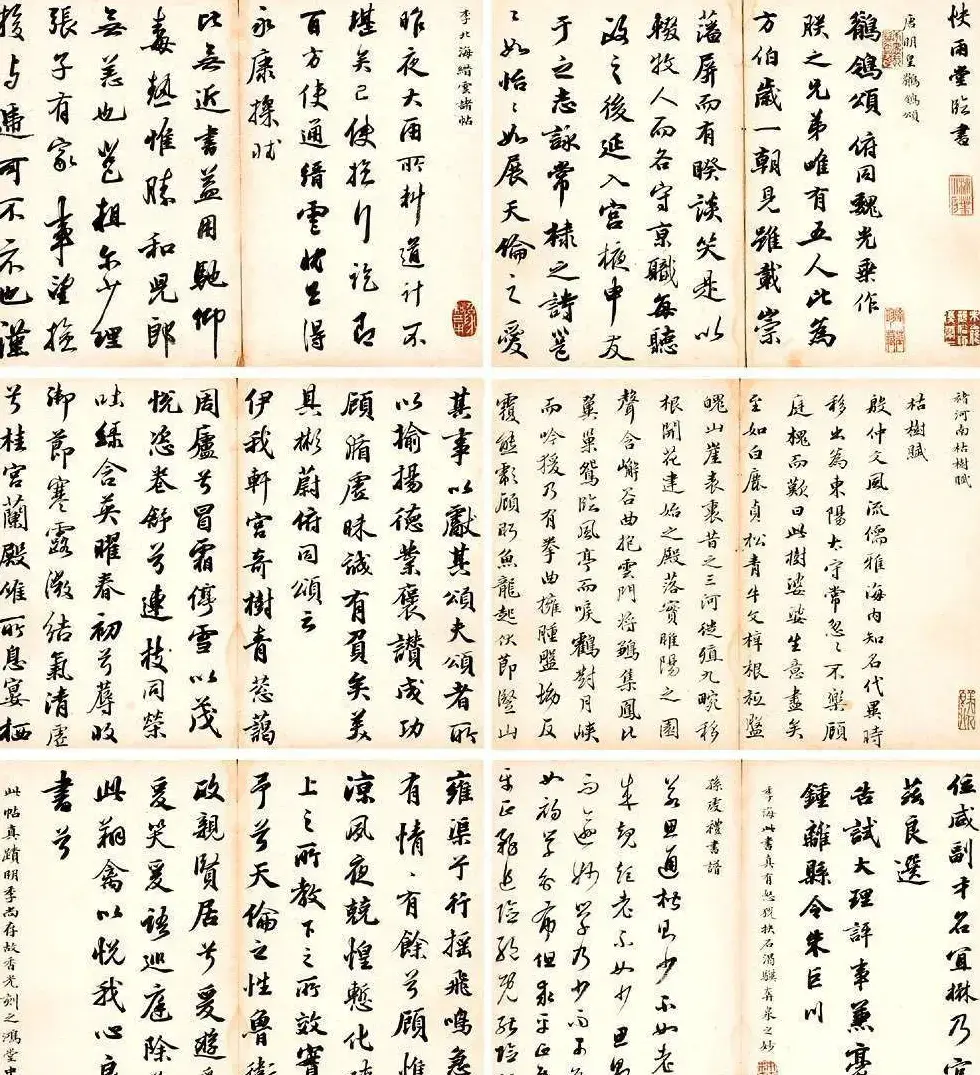 快雨堂臨書
唐明皇鶺鴒頌
鶺鴒頌 俯同魏光乘作
朕之兄弟唯有五人比為
方伯歲一朝見雖載崇
藩屏而有睽談笑是以
輟牧人而各守京職每聽
政之後延入宮掖申友
于之志詠常棣之詩邕
邕如怡怡如展天倫之愛
李北海縉雲諸帖
昨夜大雨所料道計不
堪矣已使撿行訖即
百方使通縉雲狀上得
永康操狀
比無近書益用馳仰
毒熱惟勝和兒郎
無恙也邕粗尔少理
張子有家事望撿
授与遞可不示也謹
褚河南枯樹賦
枯樹賦
殷仲文風流儒雅海內知名代異時
移出為東陽太守常忽忽不樂顧
庭槐而歎曰此樹婆娑生意盡矣
至如白鹿貞松青牛文梓根柢盤
魄山崖表裏昔之三河徙殖九畹移
根開花建始之殿落實睢陽之園
聲含嶰谷曲抱雲門將鶵集鳳比
翼巢鴛臨風亭而唳鶴對月峽
而吟猨乃有拳曲擁腫盤坳反
覆熊彪顧盼魚龍起伏節竪山
其事以獻其頌夫頌者所
以揄揚德業褒讚成功
顧循虛昧誠有負矣美
其彬蔚俯同頌云
伊我軒宮奇樹青葱藹
周廬兮冒霜停雪以茂
悅恣卷舒兮連枝同榮
吐綠含英曜春初兮蓐收
御節寒露微結氣清虛
兮桂宮蘭殿唯所息宴棲
位咸副才名宜楙乃官
茲良選
告試大理評事兼豪
鍾離縣令朱巨川
李海此書真有怒猊抉石渴驥奔泉之妙
孫虔禮書譜
若思通楷則少不如老
成規矩老不如少思
而逾妙學乃少而可
如初學分布但求平正
平正務追險絕既能險
雍渠兮行搖飛鳴急
有情情有餘兮顧惟
涼夙夜兢惶慙化
上之所教下之所效實
乎兮天倫之性魯衛
政親賢居兮爰遊爰
爰笑爰語巡庭除
此翔禽以悅我心良
書兮
此帖真蹟明季尚存故香光刻之鴻堂中